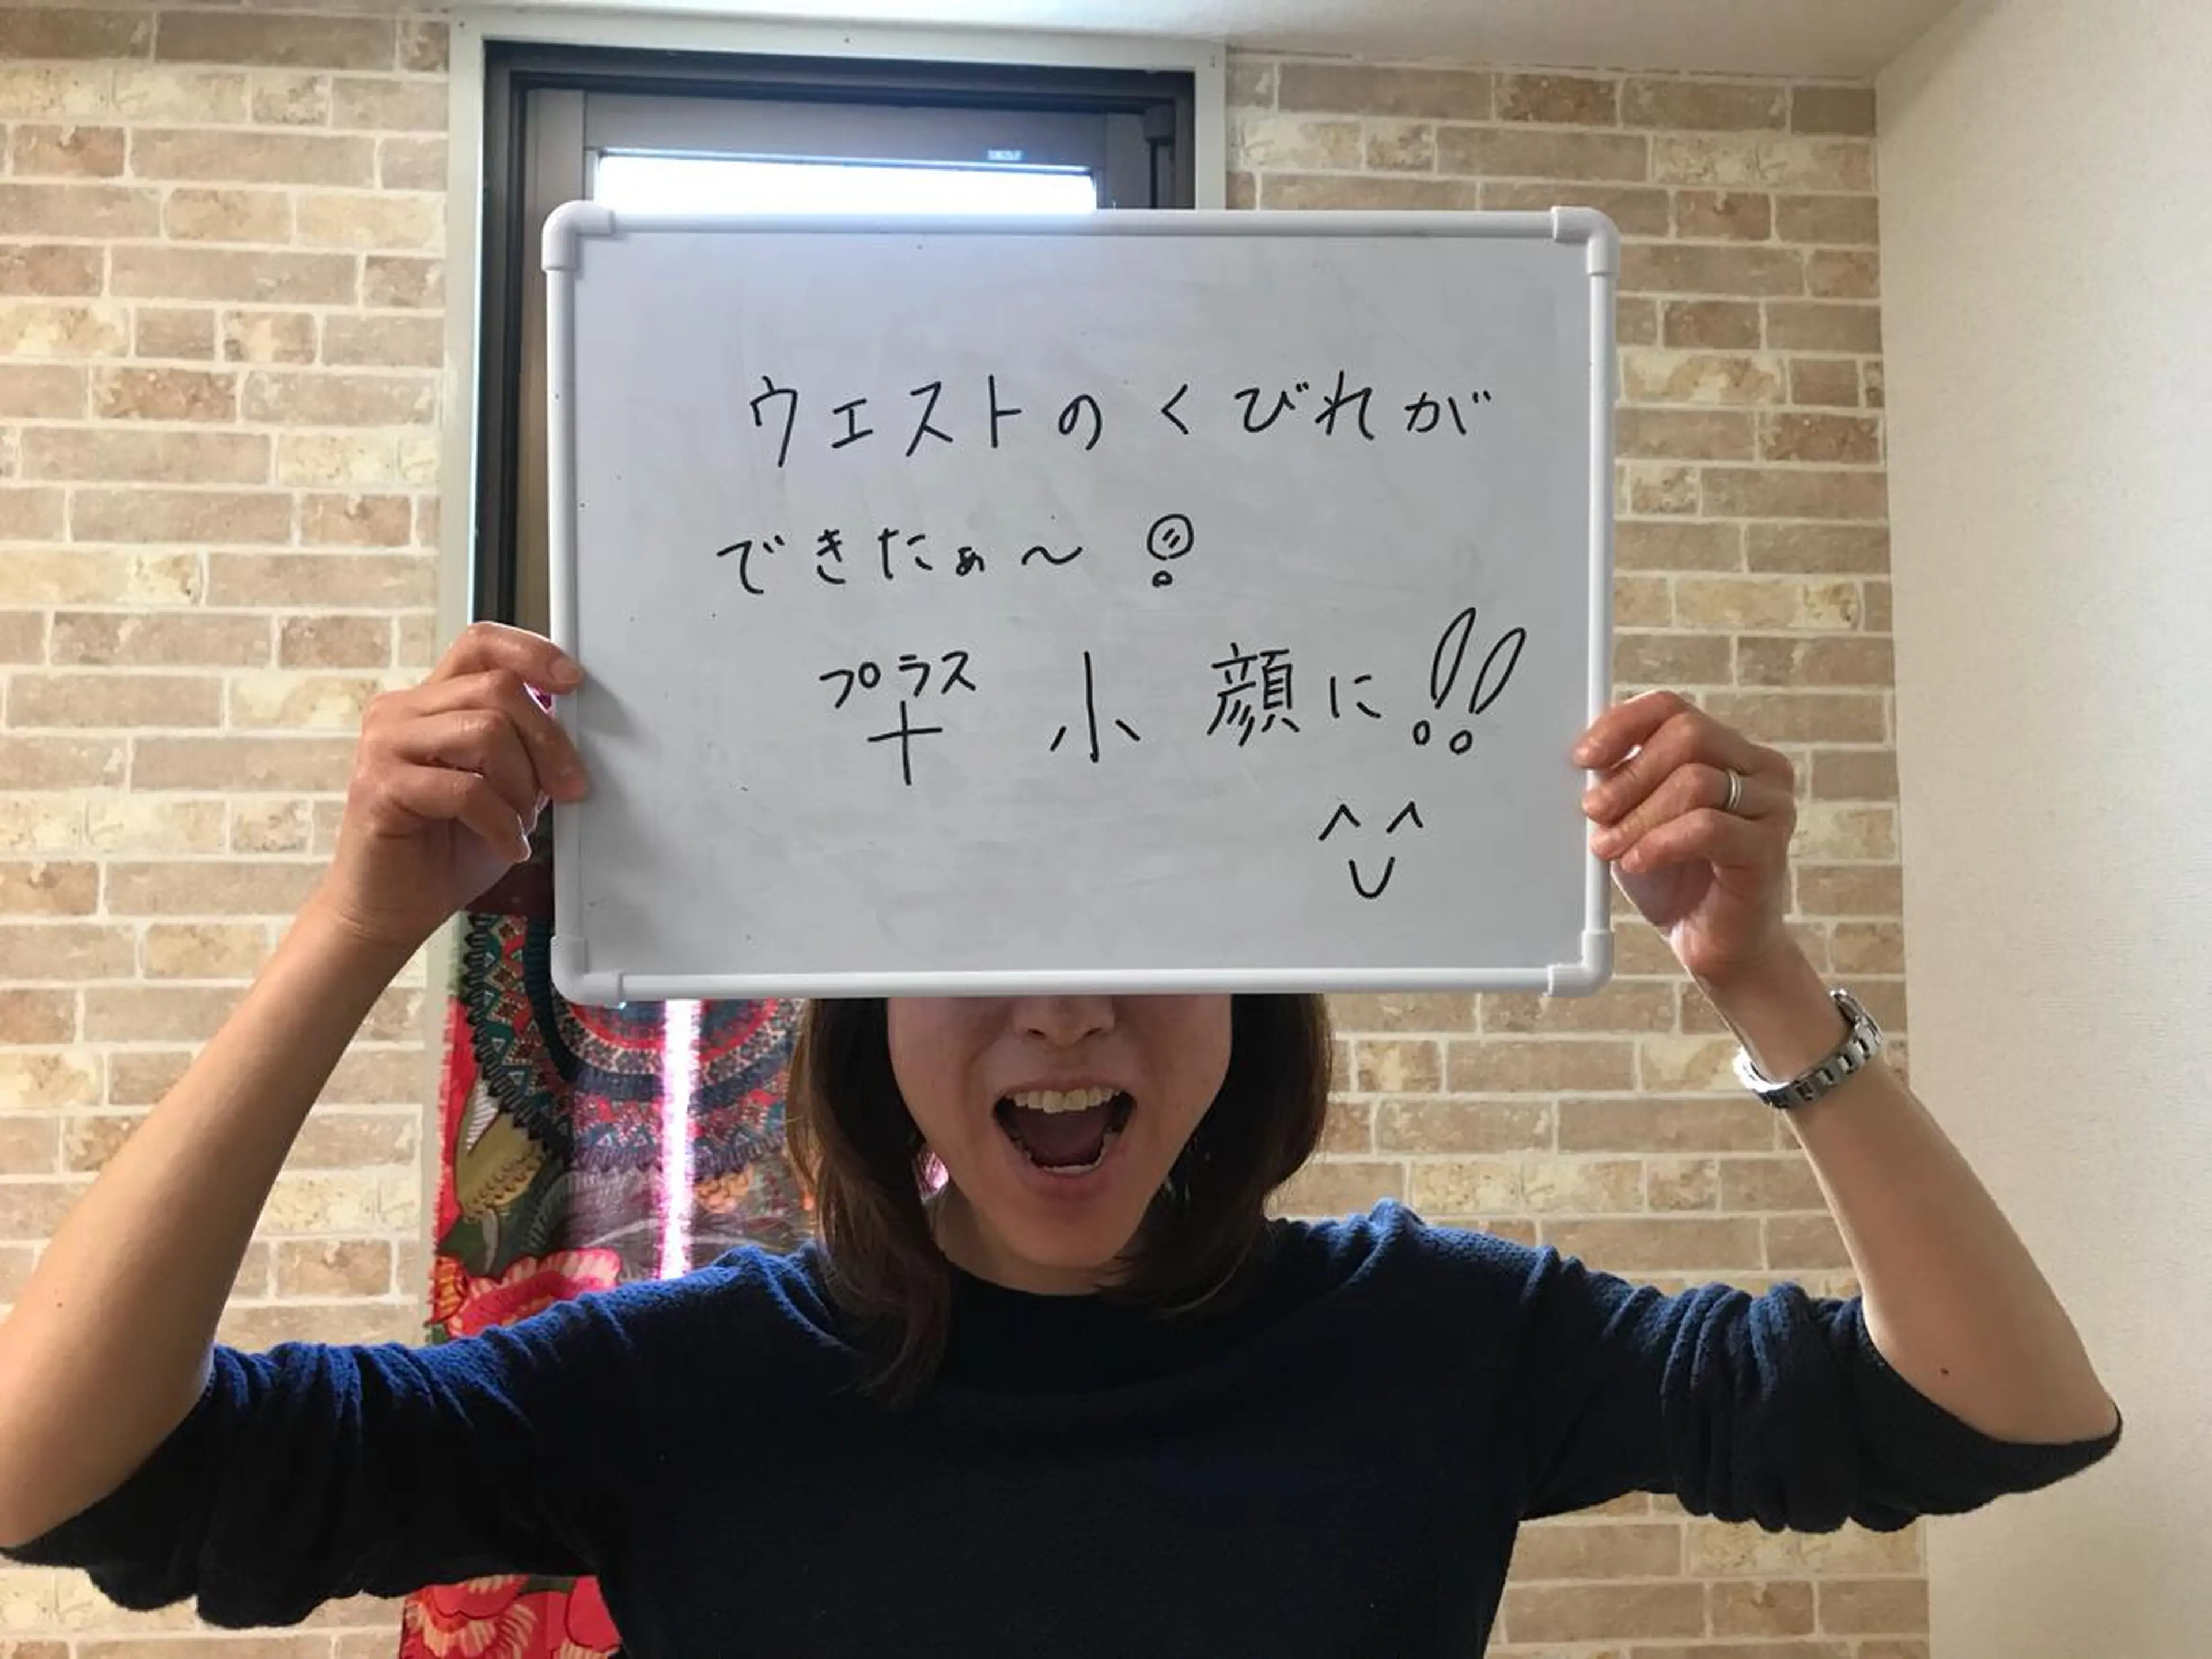 ウエストのくびれが
できたぁ〜!
プラス
+ 小顔に!!